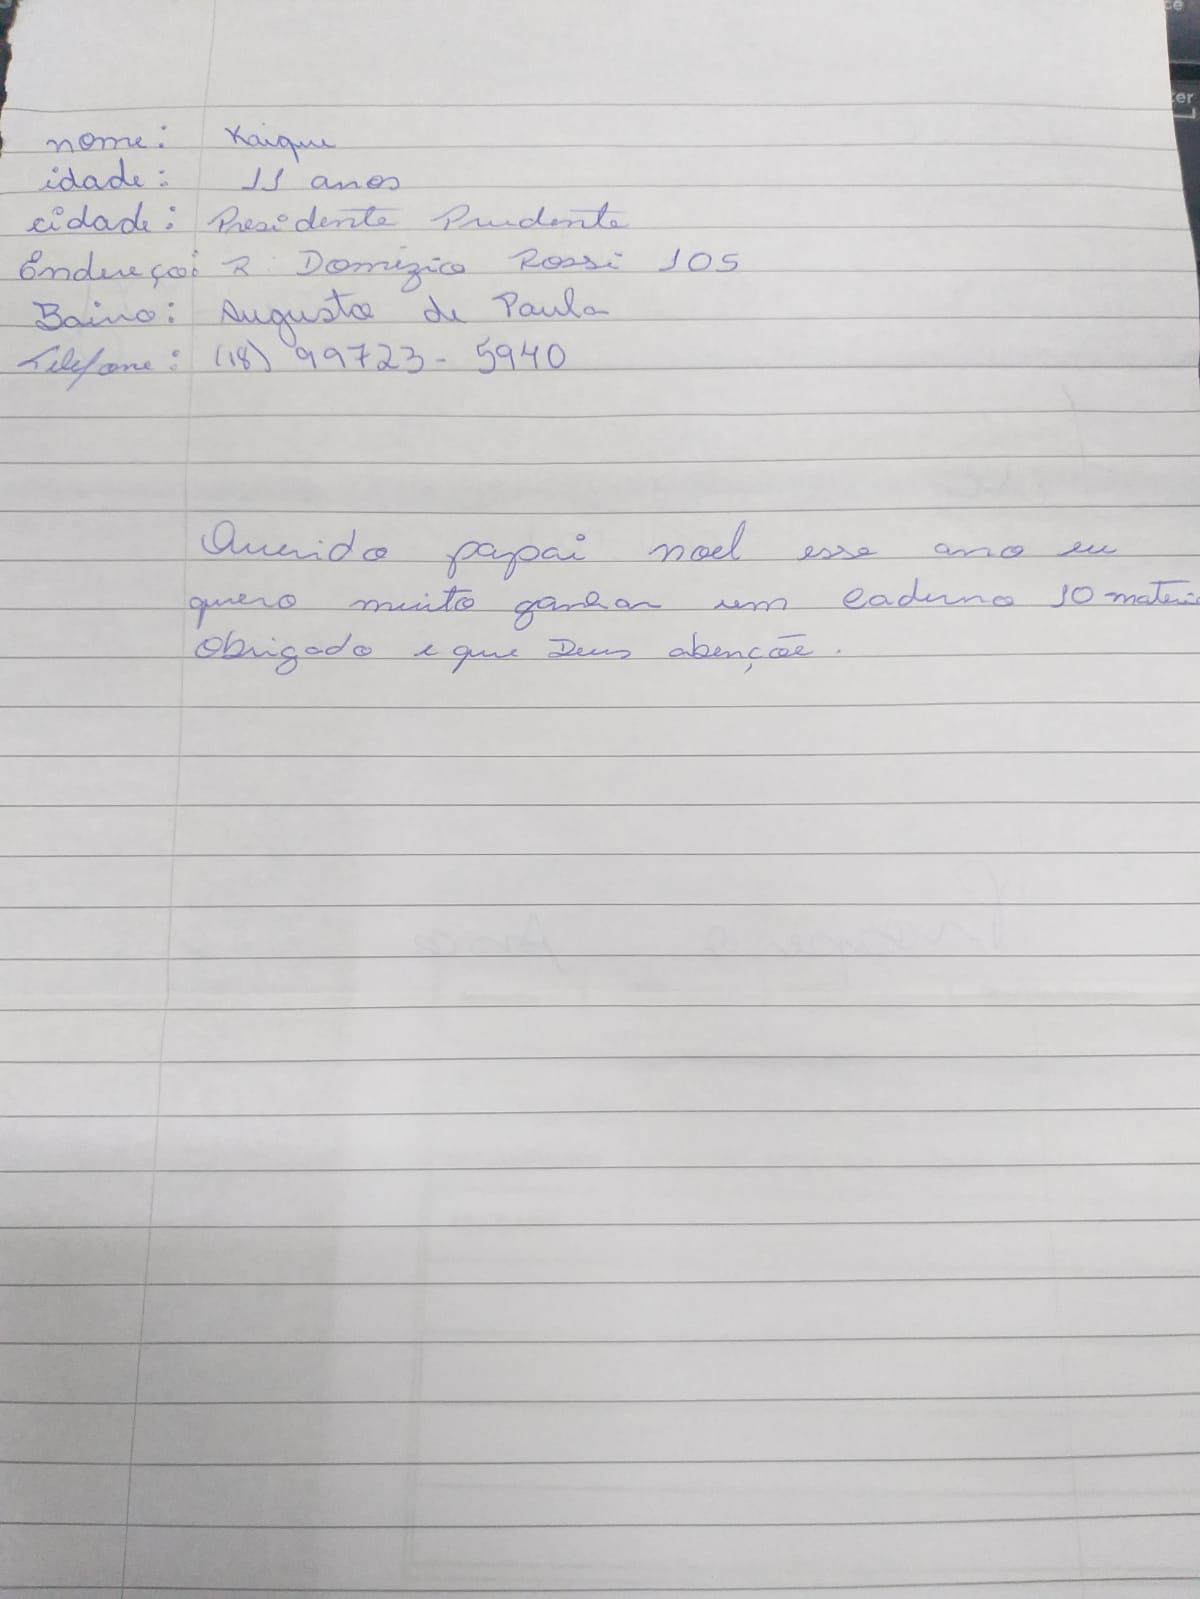 nome: Kaique
idade: 11 anos
cidade: Presidente Prudente
Endereço: R Domizico Rossi 105
Bairro: Augusto de Paula
Telefone: (18) 99723-5940
Querido papai noel esse ano eu
quero muito ganhar um caderno 10 materia
Obrigado e que Deus abençõe.